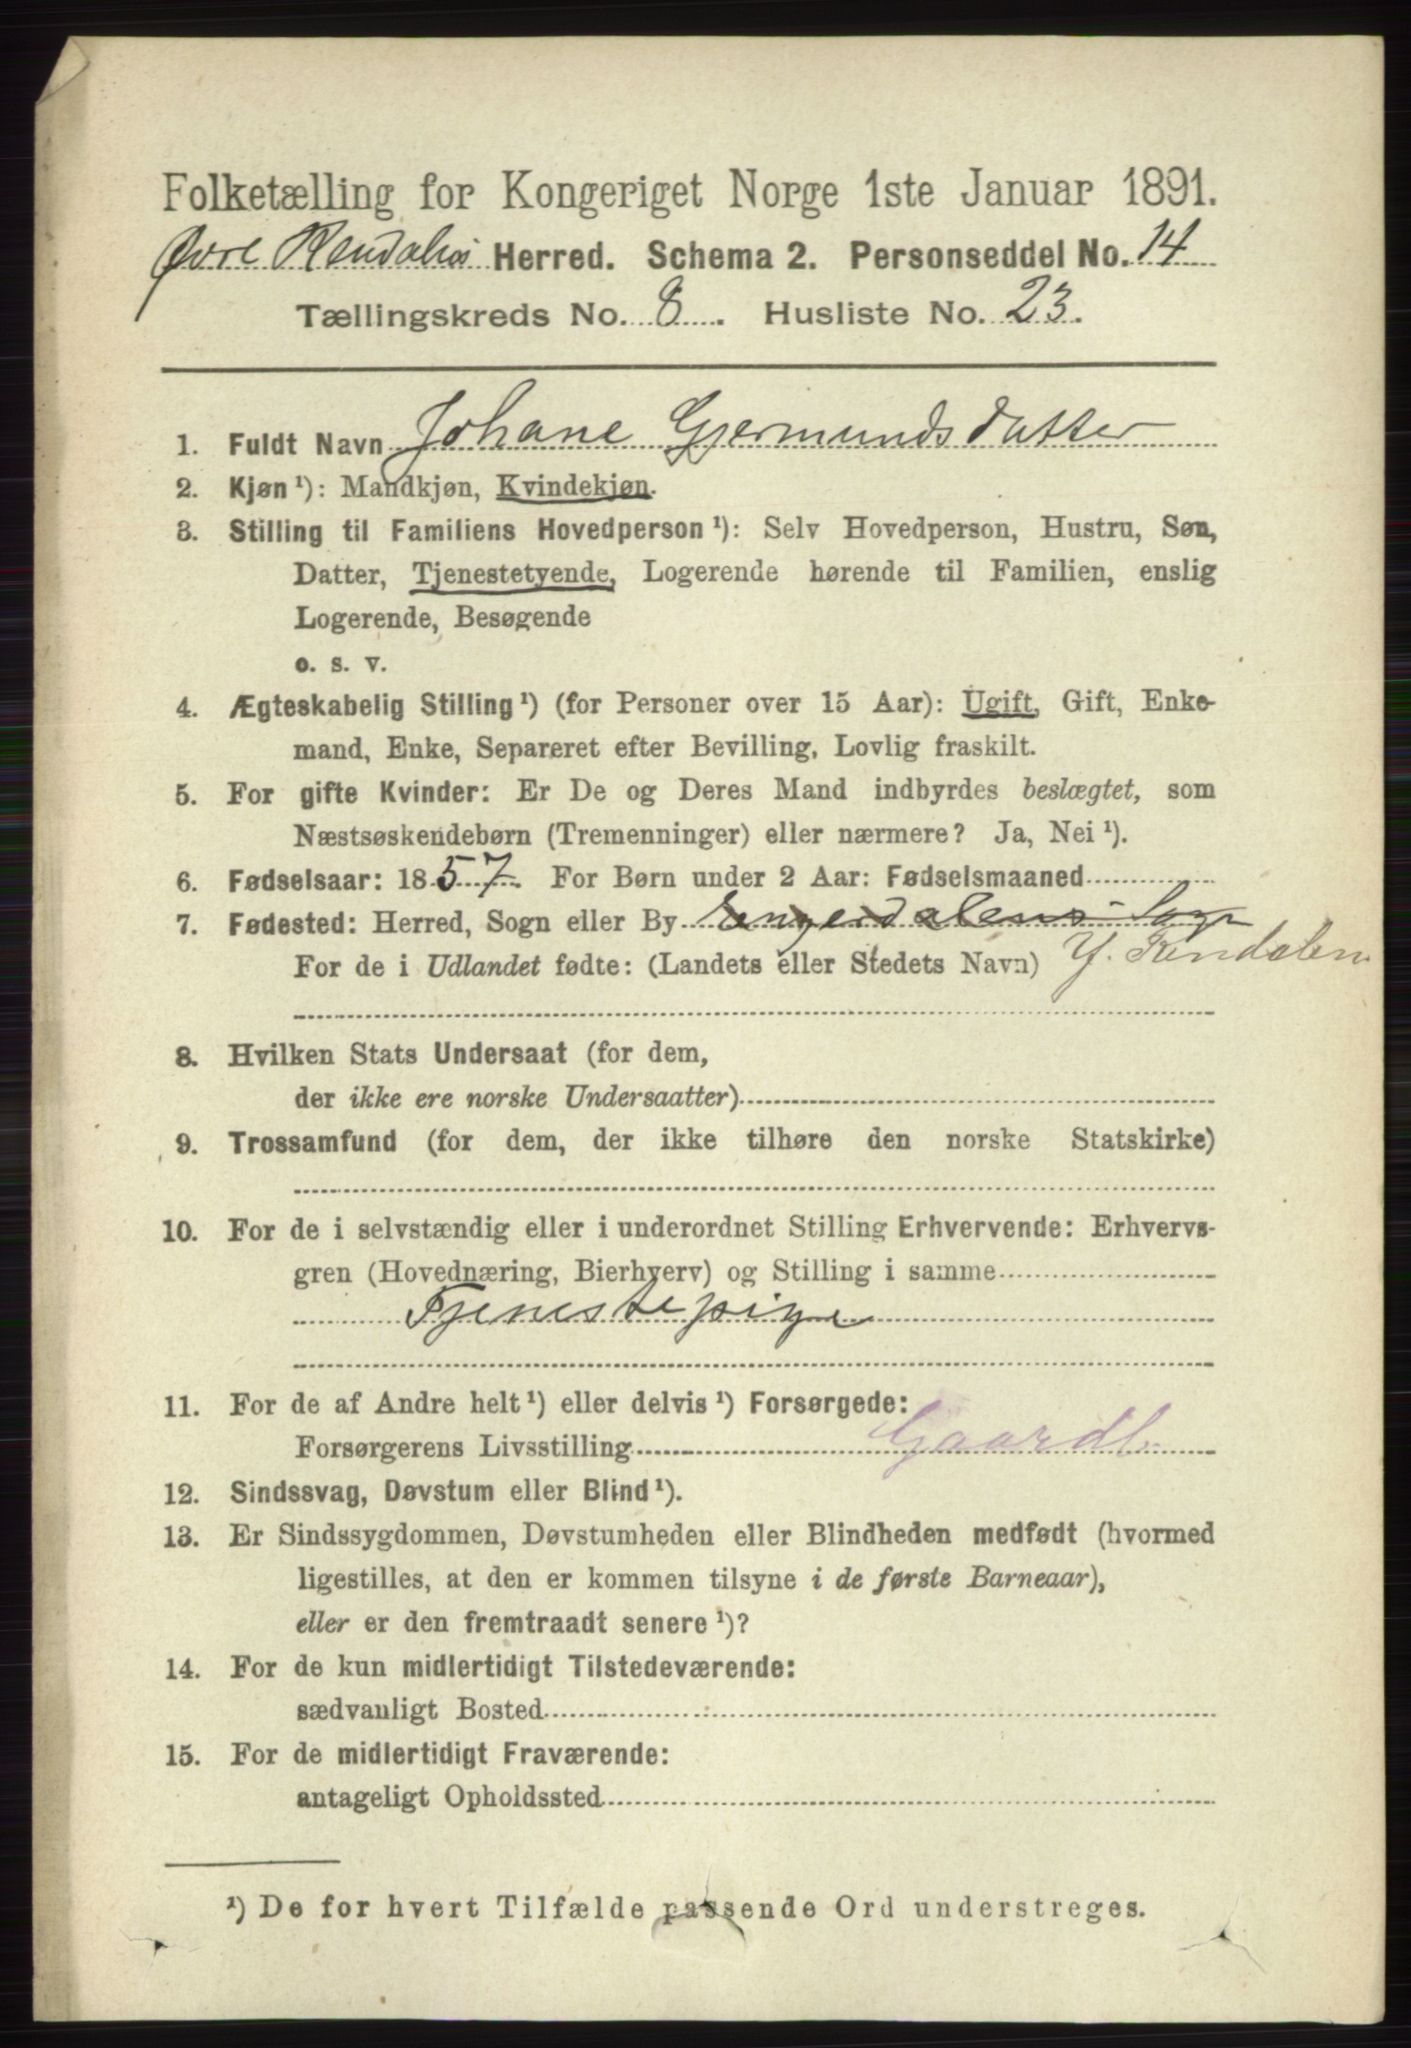 Folketælling for Kongeriget Norge 1ste Januar 1891.
Øvre Rendalens Herred. Schema 2. Personseddel No. 14
Tællingskreds No. 8. Husliste No. 23.
1. Fuldt Navn Johane Gjermundsdatter
2. Kjøn ¹): Mandkjøn, Kvindekjøn.
3. Stilling til Familiens Hovedperson ¹): Selv Hovedperson, Hustru, Søn,
Datter, Tjenestetyende, Logerende hørende til Familien, enslig
Logerende, Besøgende
o. s. v.
4. Ægteskabelig Stilling ¹) (for Personer over 15 Aar): Ugift, Gift, Enke-
mand, Enke, Separeret efter Bevilling, Lovlig fraskilt.
5. For gifte Kvinder: Er De og Deres Mand indbyrdes beslægtet, som
Næstsøskendebørn (Tremenninger) eller nærmere? Ja, Nei ¹).
6. Fødselsaar: 1857. For Børn under 2 Aar: Fødselsmaaned
7. Fødested: Herred, Sogn eller By Engerdalens Sogn
For de i Udlandet fødte: (Landets eller Stedets Navn) Y. Rendalen
8. Hvilken Stats Undersaat (for dem,
der ikke ere norske Undersaatter)
9. Trossamfund (for dem, der ikke tilhøre den norske Statskirke)
10. For de i selvstændig eller i underordnet Stilling Erhvervende: Erhvervs-
gren (Hovednæring, Bierhverv) og Stilling i samme
Tjenestepige
11. For de af Andre helt ¹) eller delvis ¹) Forsørgede:
Forsørgerens Livsstilling Gaardb.
12. Sindssvag, Døvstum eller Blind ¹).
13. Er Sindssygdommen, Døvstumheden eller Blindheden medfødt (hvormed
ligestilles, at den er kommen tilsyne i de første Barneaar),
eller er den fremtraadt senere ¹)?
14. For de kun midlertidigt Tilstedeværende:
sædvanligt Bosted
15. For de midlertidigt Fraværende:
antageligt Opholdssted
¹) De for hvert Tilfælde passende Ord understreges.